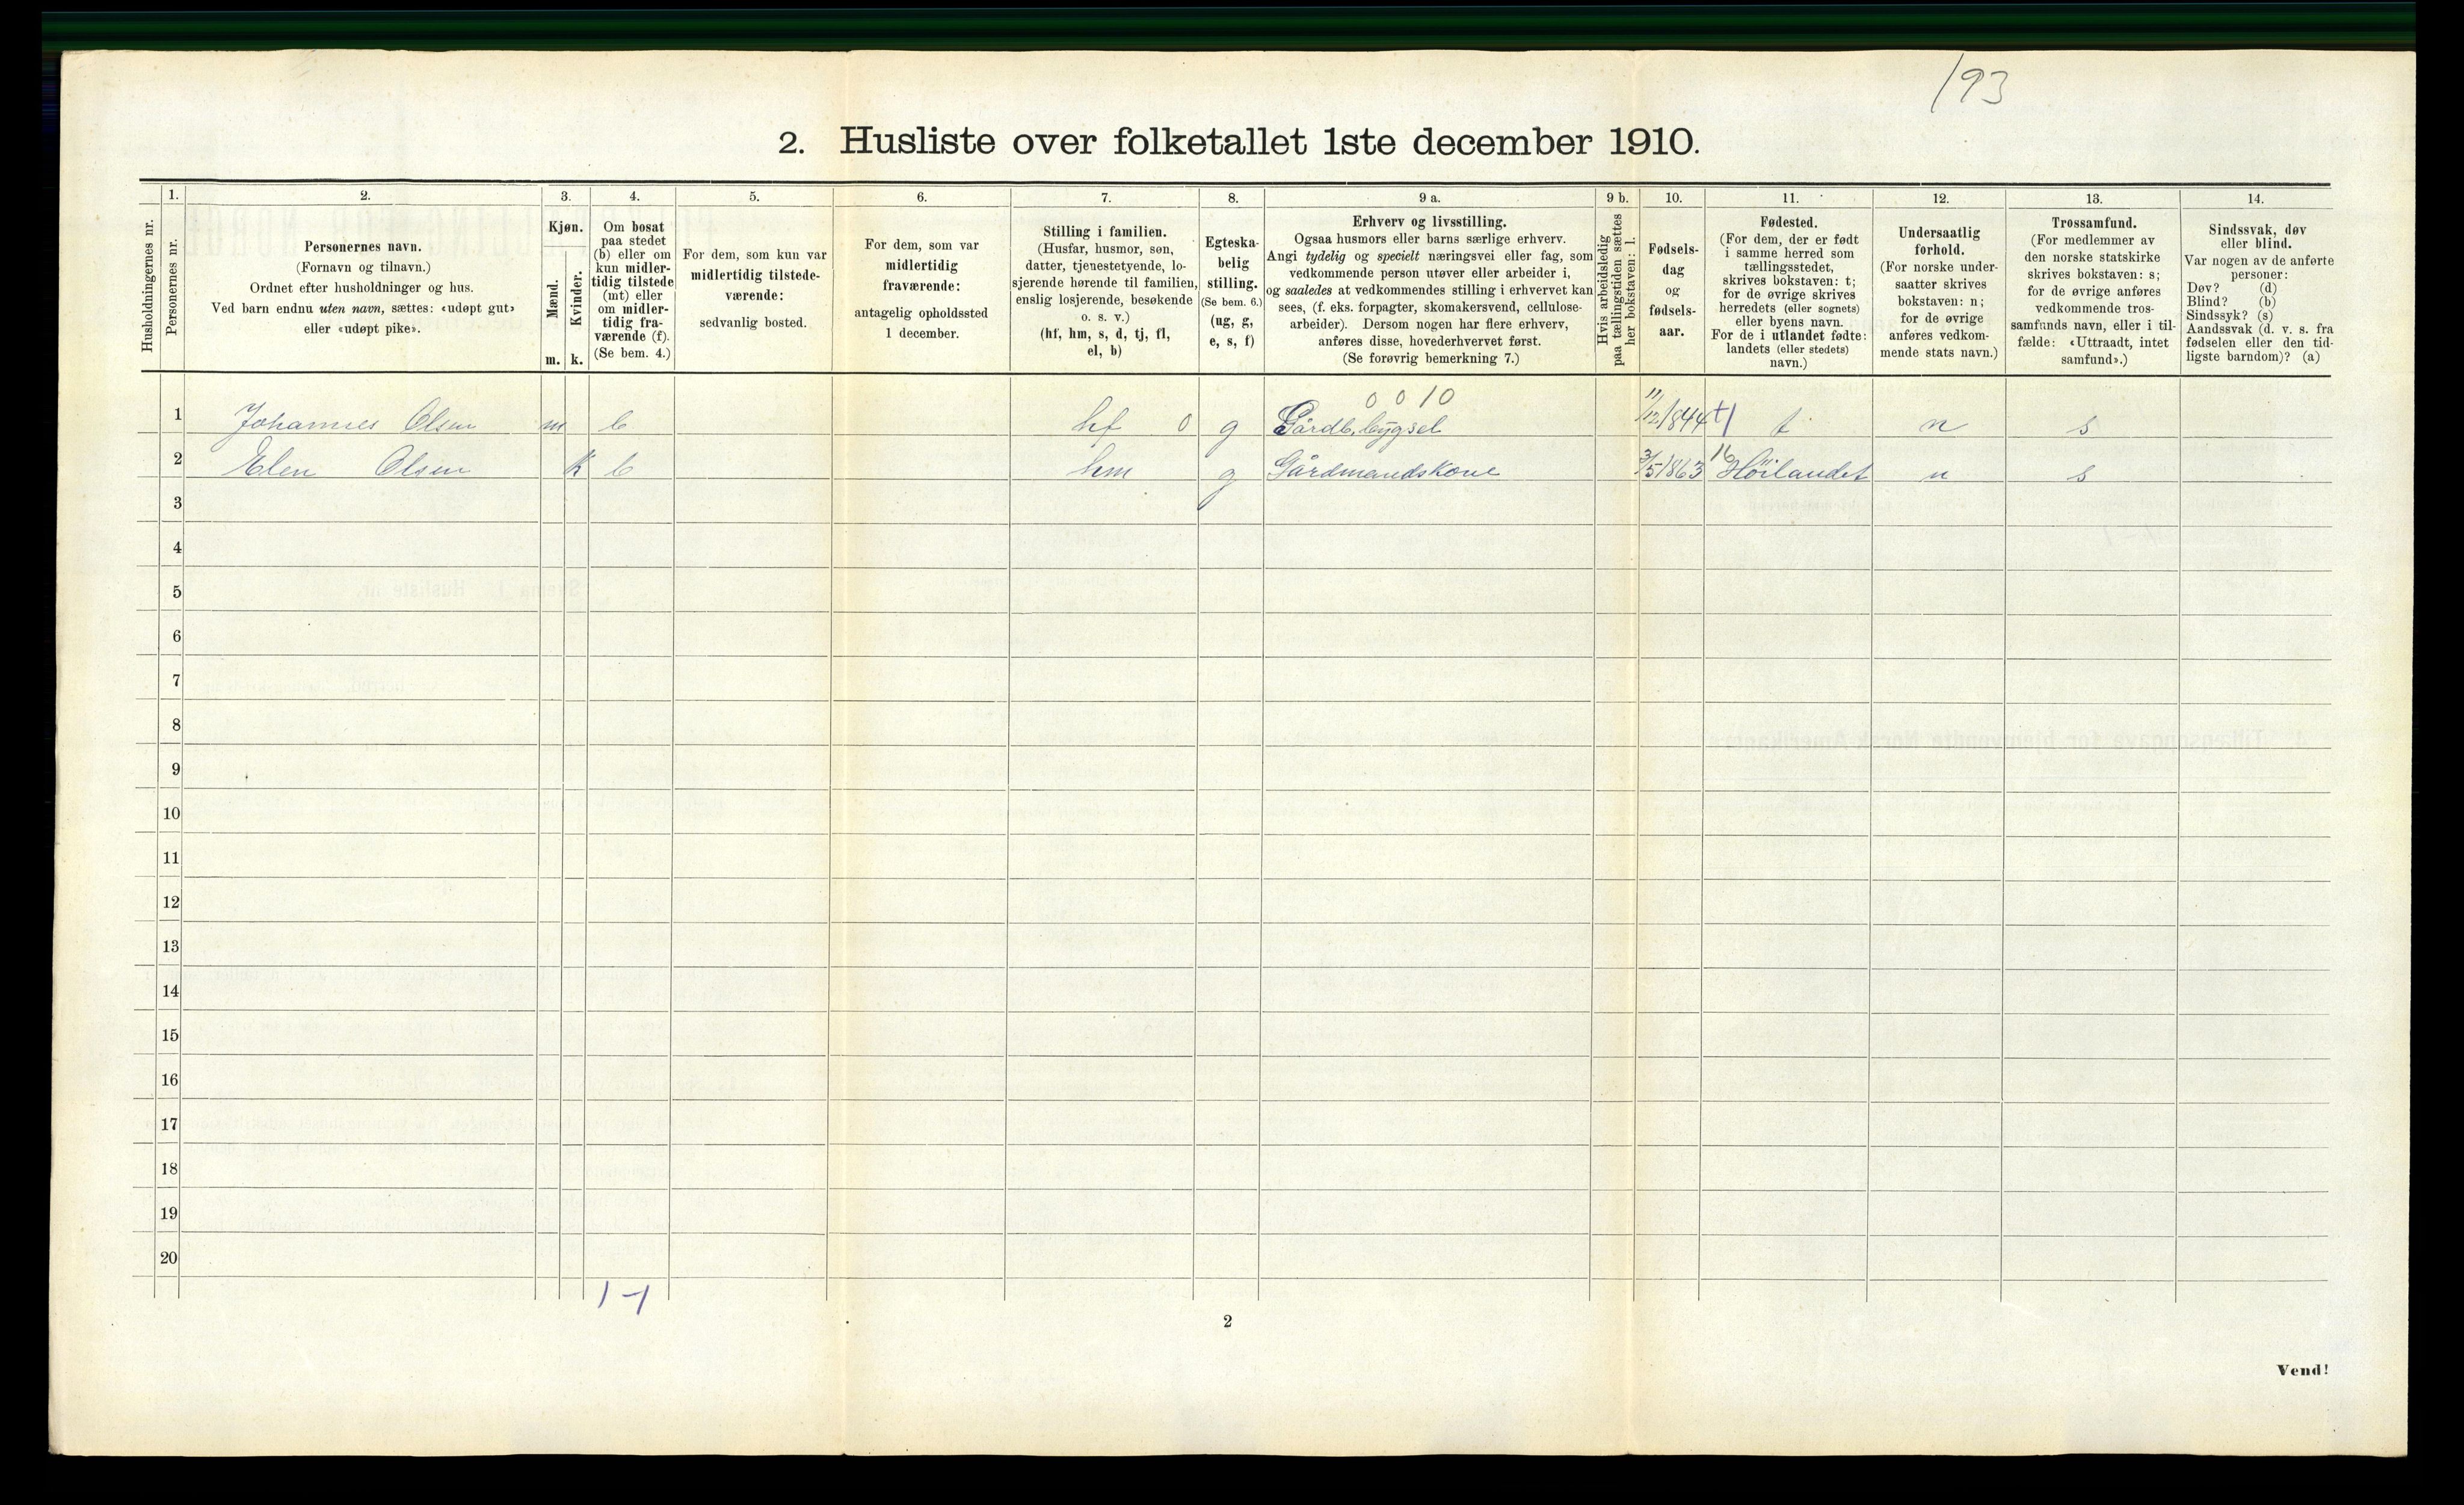 193
2. Husliste over folketallet 1ste december 1910.
Husholdningernes nr.
1.
Personernes nr.
2.
Personernes navn.
(Fornavn og tilnavn.)
Ordnet efter husholdninger og hus.
Ved barn endnu uten navn, sættes: «udøpt gut»
eller «udøpt pike».
3.
Kjøn.
Mænd.
Kvinder.
m. k.
4.
Om bosat
paa stedet
(b) eller om
kun midler-
tidig tilstede
(mt) eller
om midler-
tidig fra-
værende (f).
(Se bem. 4.)
5.
For dem, som kun var
midlertidig tilstede-
værende:
sedvanlig bosted.
6.
For dem, som var
midlertidig
fraværende:
antagelig opholdssted
1 december.
7.
Stilling i familien.
(Husfar, husmor, søn,
datter, tjenestetyende, lo-
sjerende hørende til familien,
enslig losjerende, besøkende
o. s. v.)
(hf, hm, s, d, tj, fl,
el, b)
8.
Egteska-
belig
stilling.
(Se bem. 6.)
(ug, g,
e, s, f)
9 a.
Erhverv og livsstilling.
Ogsaa husmors eller barns særlige erhverv.
Angi tydelig og specielt næringsvei eller fag, som
vedkommende person utøver eller arbeider i,
og saaledes at vedkommendes stilling i erhvervet kan
sees, (f. eks. forpagter, skomakersvend, cellulose-
arbeider). Dersom nogen har flere erhverv,
anføres disse, hovederhvervet først.
(Se forøvrig bemerkning 7.)
9 b.
Hvis arbeidsledig
paa tællingstiden sættes
her bokstaven: l.
10.
Fødsels-
dag
og
fødsels-
aar.
11.
Fødested.
(For dem, der er født
i samme herred som
tællingsstedet,
skrives bokstaven: t;
for de øvrige skrives
herredets (eller sognets)
eller byens navn.
For de i utlandet fødte:
landets (eller stedets)
navn.)
12.
Undersaatlig
forhold.
(For norske under-
saatter skrives
bokstaven: n;
for de øvrige
anføres vedkom-
mende stats navn.)
13.
Trossamfund.
(For medlemmer av
den norske statskirke
skrives bokstaven: s;
for de øvrige anføres
vedkommende tros-
samfunds navn, eller i til-
fælde: «Uttraadt, intet
samfund».)
14.
Sindssvak, døv
eller blind.
Var nogen av de anførte
personer:
Døv? (d)
Blind? (b)
Sindssyk? (s)
Aandssvak (d. v. s. fra
fødselen eller den tid-
ligste barndom)? (a)
0 0 10
1 Johannes Olsen m b hf 0 g Gårdb. bygsel 11/12 1844 t n s
2 Elen Olsen k b hm g Gårdmandskone 3/5 1863 16 Höilandet n s
3
4
5
6
7
8
9
10
11
12
13
14
15
16
17
18
19
20
1-1
2
Vend!